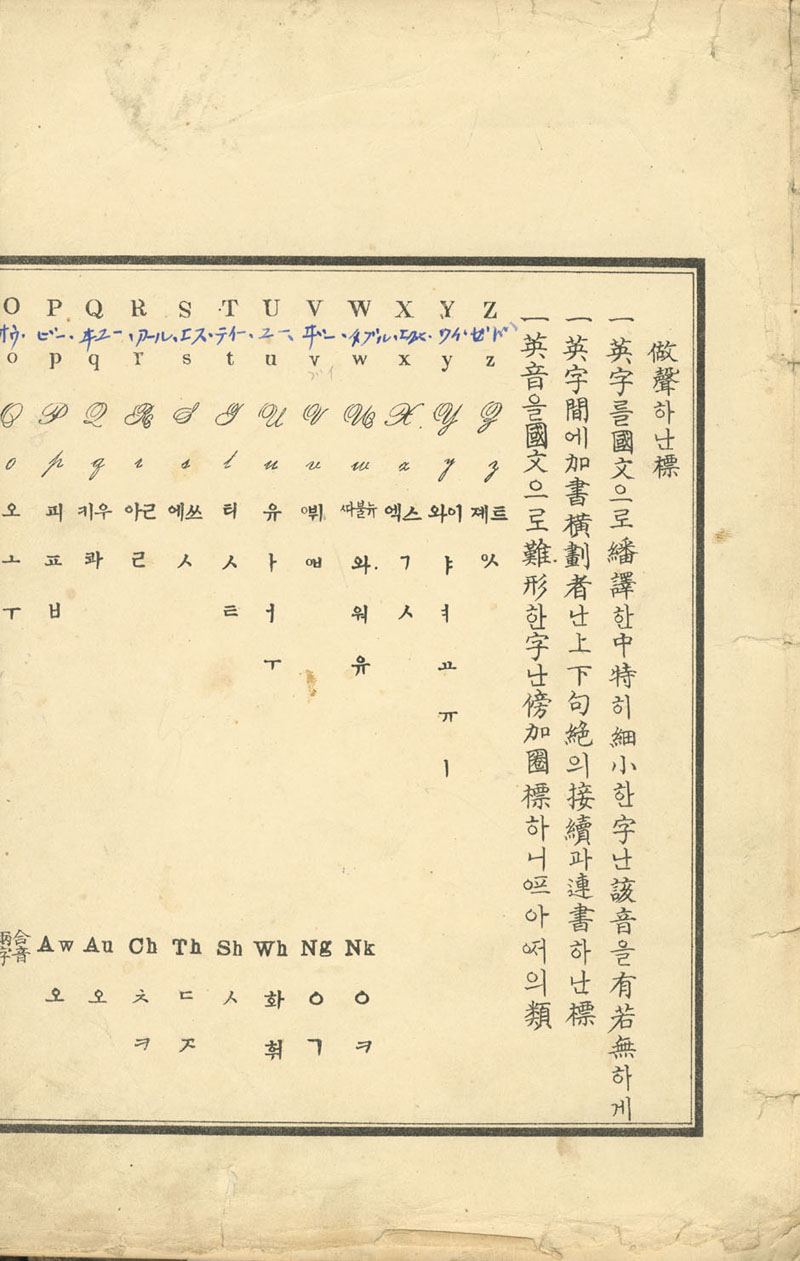 O P Q R S T U V W X Y Z
オウ・ピー・キユー、アール、エス・テイー、ユー、ヸー・ダブル、エक्स・ワイ・ゼド
o p q r s t u v w x y z
ブイ
O P Q R S T U V W X Y Z
o p q r s t u v w x y z
오 피 키우 아ᅟᅳᆯ 에쓰 티 유 ᅄᅱ 따불뉴 엑스 와이 졔트
ㅗ ㅍ 콰 ㄹ ㅅ ㅅ ㅏ ᅄ 와 ㄱ ㅑ ᅇ
ㅜ ㅂ ㅌ ㅓ 워 ㅅ ㅕ
ㅜ 유 ㅛ
ㅠ
ㅣ
合音兩字 Aw Au Ch Th Sh Wh Ng Nk
오 오 ㅊ ㄷ ㅅ 화 ㆁ ㆁ
ㅋ ㅈ 휘 ㄱ ㅋ
做聲하난標
一 英字를國文으로繙譯한中特히細小한字난該音을有若無하게
一 英字間에加書橫劃者난上下句絶의接續과連書하난標
一 英音을國文으로難形한字난傍加圈標하니 아 의類